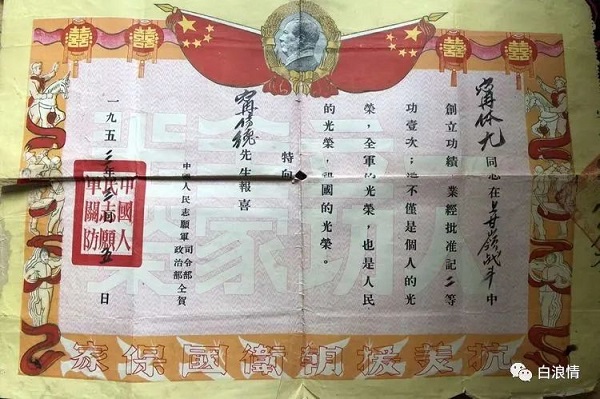 囍 囍 囍 囍
甯休九同志在上甘嶺战斗中
創立功績,業經批准記二等
功壹次;這不僅是個人的光
榮,全軍的光榮,也是人民
的光榮,祖國的光榮。
特向
先生報喜
中國人民志願軍司令部
政治部
仝賀
一九五三年 月五日
中國人
民志願
軍關防
抗美援朝衛國保家
白浪情